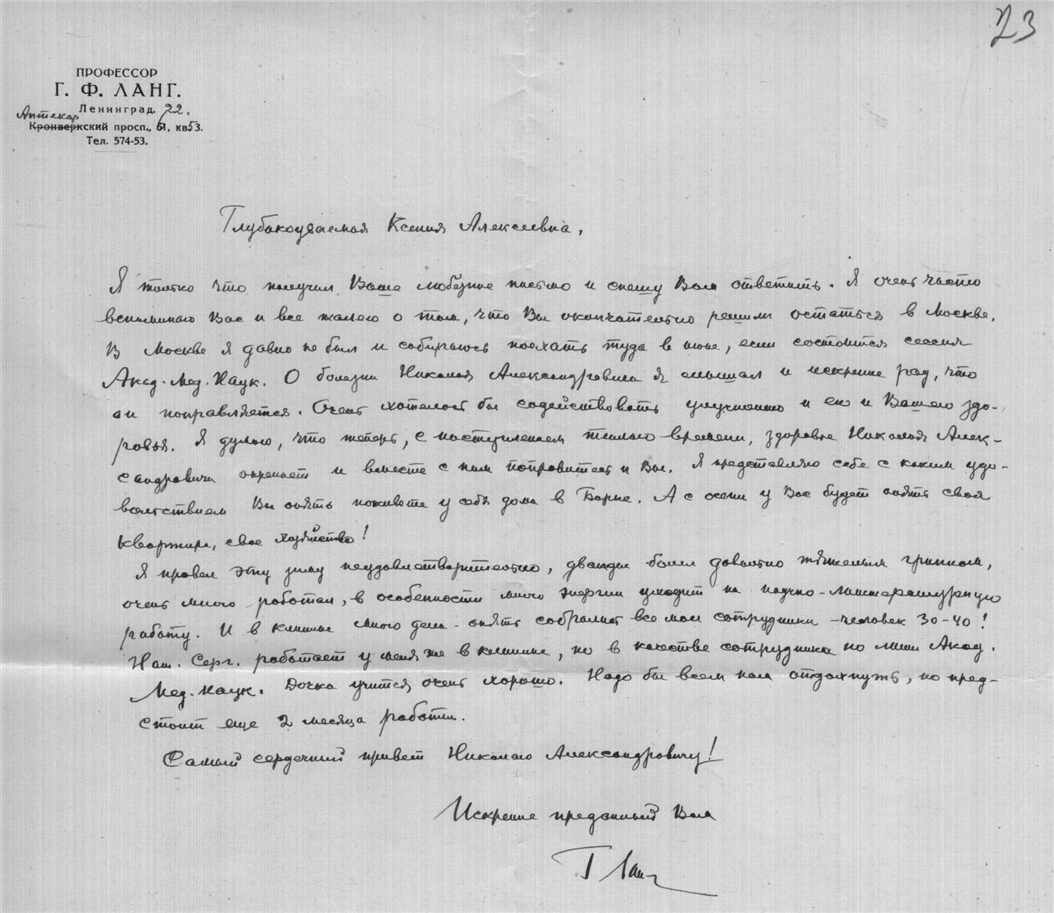 23
ПРОФЕССОР
Г. Ф. ЛАНГ.
Ленинград. 22.
Аптекар
Кронверкский просп., 61, кв. 53.
Тел. 574-53.
Глубокоуваемая Ксения Алексеевна,
Я только что получил Ваше любезное письмо и спешу Вам ответить. Я очень часто
вспоминаю Вас и все жалею о том, что Вы окончательно решили остаться в Москве.
В Москве я давно не был и собираюсь поехать туда в июне, если состоится сессия
Акад. Мед. Наук. О болезни Николая Александровича я слышал и искренне рад, что
он поправляется. Очень хотелось бы содействовать улучшению и его и Вашего здо-
ровья. Я думаю, что теперь, с наступлением теплого времени, здоровье Николая Алек-
сандровича окрепнет и вместе с ним поправитесь и Вы. Я представляю себе с каким удо-
вольствием Вы опять поживете у себя дома в Борке. А с осени у Вас будет опять своя
квартира, свое хозяйство!
Я провел эту зиму неудовлетворительно, дважды болел довольно тяжелым гриппом,
очень много работал, в особенности много энергии уходит на научно-литературную
работу. И в клинике много дела - опять собрались все мои сотрудники - человек 30-40!
Нат. Серг. работает у меня же в клинике, но в качестве сотрудника по линии Акад.
Мед. Наук. Дочка учится очень хорошо. Надо бы всем нам отдохнуть, но пред-
стоит еще 2 месяца работы.
Самый сердечный привет Николаю Александровичу!
Искренне преданный Вам
Г Ланг